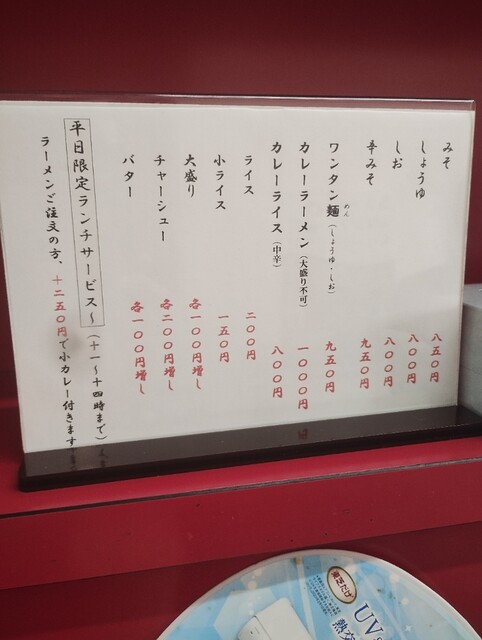 みそ 八五〇円
しょうゆ 八〇〇円
しお 八〇〇円
辛みそ 九五〇円
ワンタン麺(しょうゆ・しお) 九五〇円
めん
カレーラーメン(大盛り不可) 一〇〇〇円
カレーライス(中辛) 八〇〇円
ライス 二〇〇円
小ライス 一五〇円
大盛り 各一〇〇円増し
チャーシュー 各二〇〇円増し
バター 各一〇〇円増し
平日限定ランチサービス〜(十一〜十四時まで)
ラーメンご注文の方、十二五〇円で小カレー付きます
UV